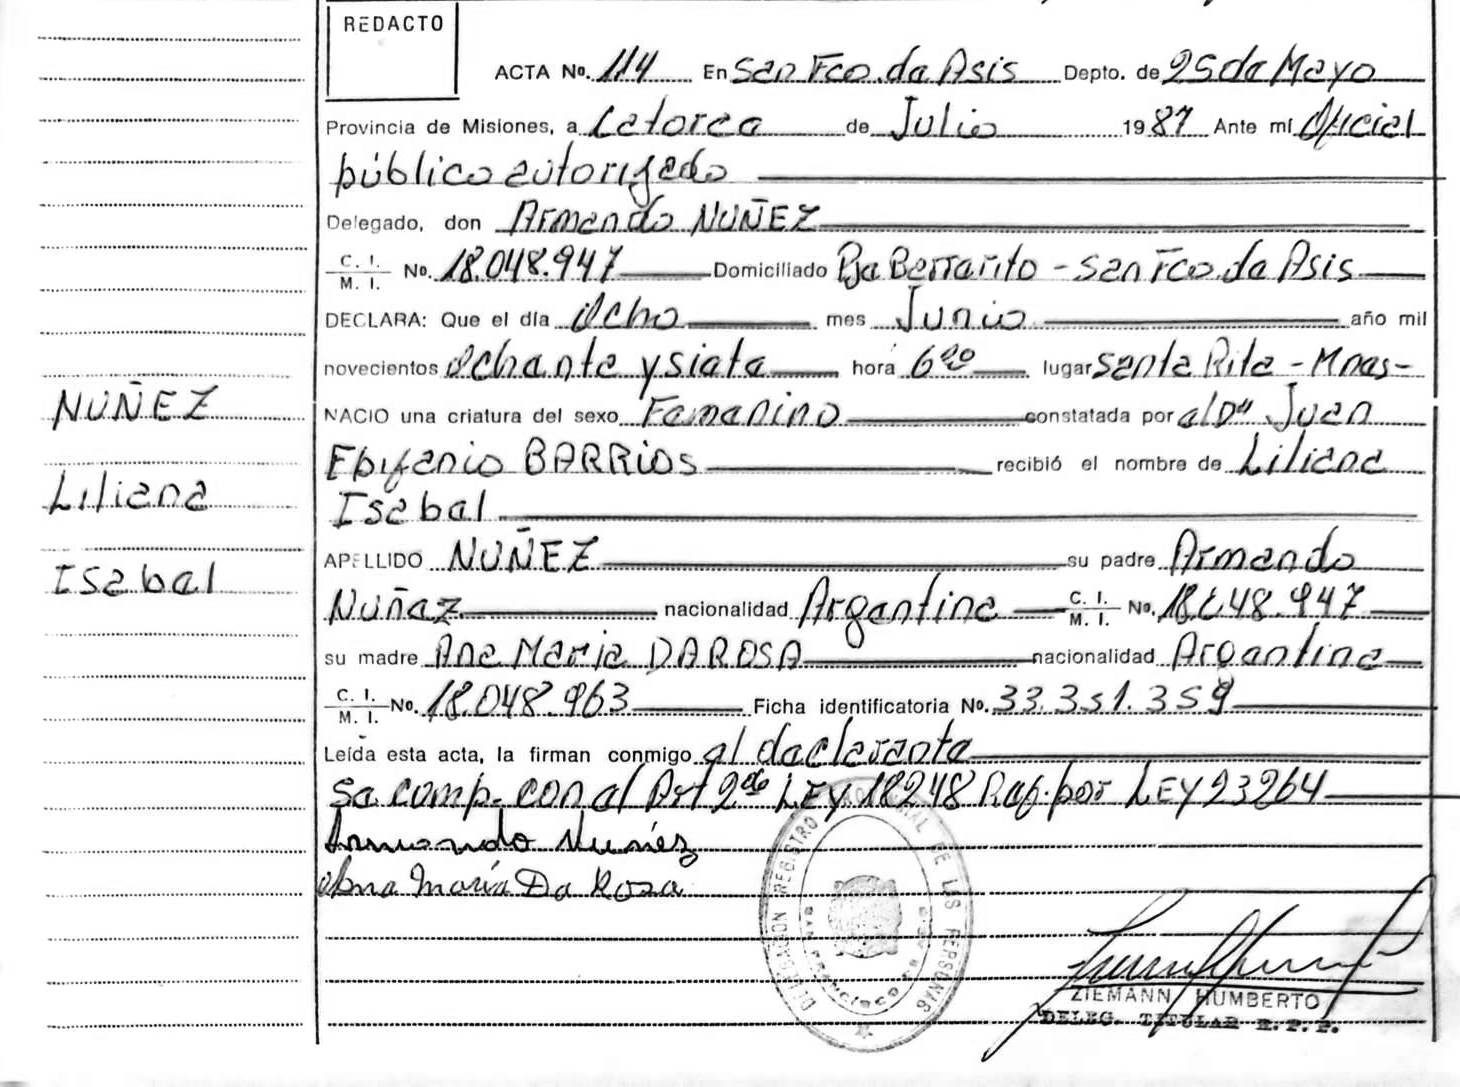 REDACTO
ACTA No. 114 En San Fco. de Asis Depto. de 25 de Mayo
Provincia de Misiones, a Catorce de Julio 1987 Ante mí Oficial
público autorizado
Delegado, don Armando NUÑEZ
C. I. / M. I. No. 18.048.947 Domiciliado Pje Berrarito - San Fco. de Asis
DECLARA: Que el día Ocho mes Junio año mil
novecientos Ochenta y siete hora 6⁰⁰ lugar Santa Rita - Mnes-
NACIO una criatura del sexo Femenino constatada por el Dn Juan
Epifanio BARRIOS recibió el nombre de Liliana
Isabel
APELLIDO NUÑEZ su padre Armando
Nuñez nacionalidad Argentina C. I. / M. I. No. 18.048.947
su madre Ana Maria DA ROSA nacionalidad Argentina
C. I. / M. I. No. 18.048.963 Ficha identificatoria No. 33.351.359
Leída esta acta, la firman conmigo el declarante
Se comp. con el Art 2do LEY 18248 Ref. por LEY 23264
Armando Nuñez
Ana María Da Rosa
NUÑEZ
Liliana
Isabel
DELEGACION REGISTRO PROVINCIAL DE LAS PERSONAS
SAN FRANCISCO DE ASIS
ZIEMANN HUMBERTO
DELEG. TITULAR R. P. P.